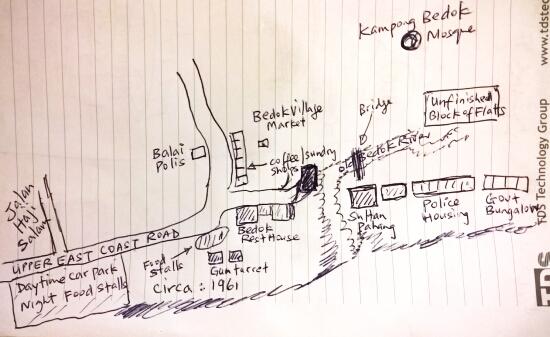 Kampong Bedok
Mosque
www.tdstec
TDS Technology Group
Unfinished
Block of Flats
Bridge
Bedok River
Bedok Village
Market
Coffee/sundry
shops
Balai
Polis
Jalan
Haji
Salam
UPPER EAST COAST ROAD
Daytime Car Park
Night Food Stalls
Food
Stalls
Bedok
Rest House
Gun turret
Circa : 1961
Pahang
Police
Housing
Govt
Bungalows